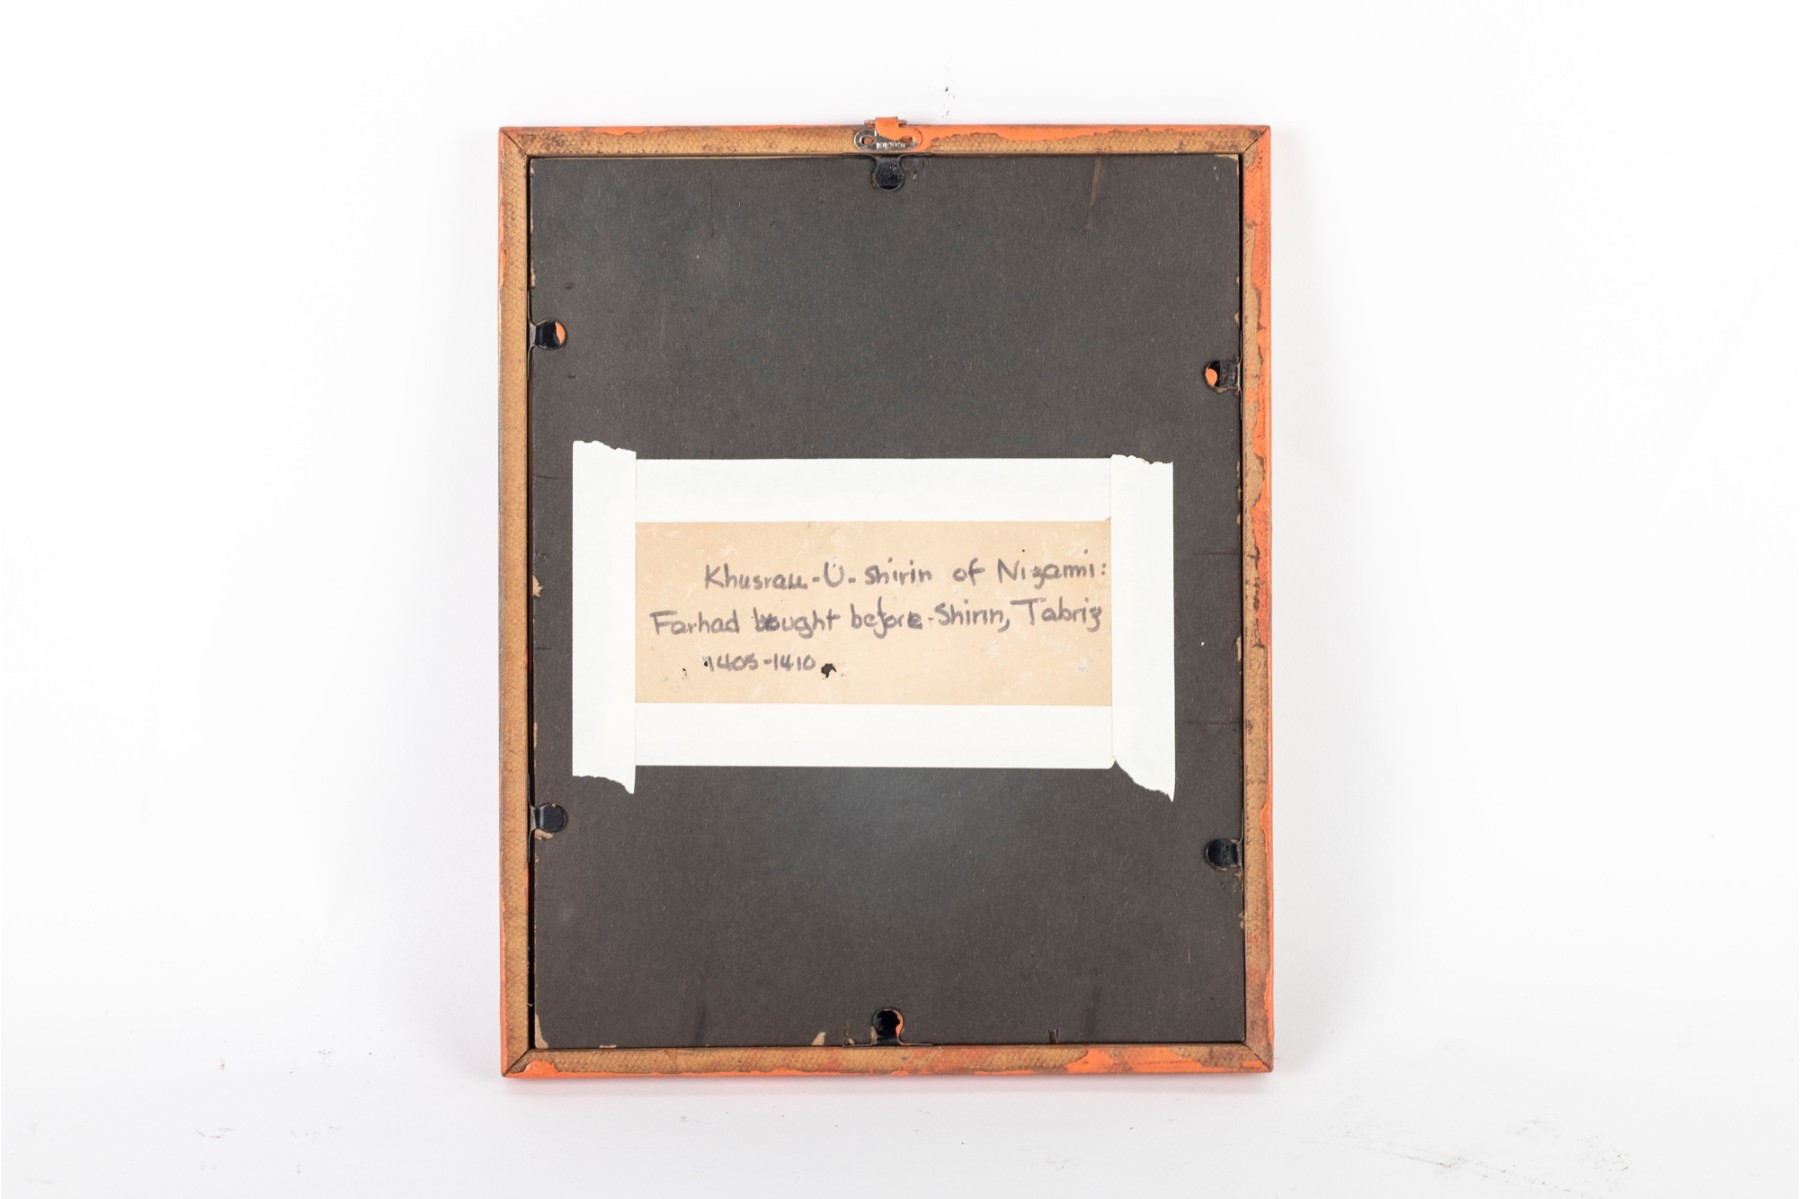 Khusrau-U-Shirin of Nizami:
Farhad bought before Shirin, Tabriz
1405-1410